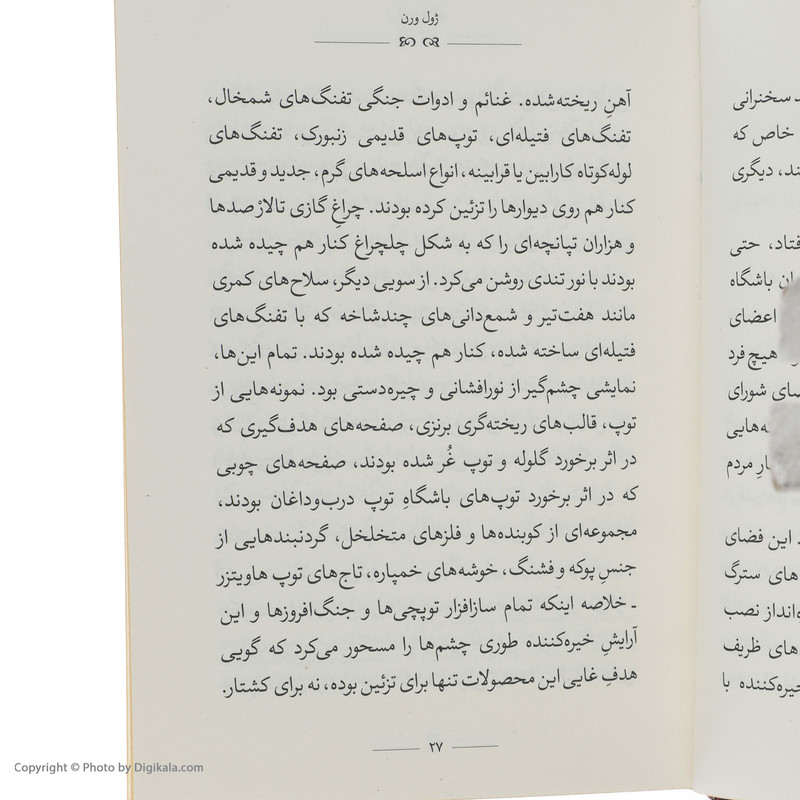 ژول ورن
آهنِ ریخته‌شده. غنائم و ادوات جنگی تفنگ‌های شمخال،
تفنگ‌های فتیله‌ای، توپ‌های قدیمی زنبورک، تفنگ‌های
لوله‌کوتاه کارابین یا قرابینه، انواع اسلحه‌های گرم، جدید و قدیمی
کنار هم روی دیوارها را تزئین کرده بودند. چراغِ گازی تالار صدها
و هزاران تپانچه‌ای را که به شکل چلچراغ کنار هم چیده شده
بودند با نور تندی روشن می‌کرد. از سویی دیگر، سلاح‌های کمری
مانند هفت‌تیر و شمع‌دانی‌های چندشاخه که با تفنگ‌های
فتیله‌ای ساخته شده، کنار هم چیده شده بودند. تمام این‌ها،
نمایشی چشم‌گیر از نورافشانی و چیره‌دستی بود. نمونه‌هایی از
توپ، قالب‌های ریخته‌گری برنزی، صفحه‌های هدف‌گیری که
در اثر برخورد گلوله و توپ غُر شده بودند، صفحه‌های چوبی
که در اثر برخورد توپ‌های باشگاهِ توپ درب‌وداغان بودند،
مجموعه‌ای از کوبنده‌ها و فلزهای متخلخل، گردنبندهایی از
جنسِ پوکه و فشنگ، خوشه‌های خمپاره، تاج‌های توپ هاویتزر
ـ خلاصه اینکه تمام سازافزار توپچی‌ها و جنگ‌افروزها و این
آرایشِ خیره‌کننده طوری چشم‌ها را مسحور می‌کرد که گویی
هدفِ غایی این محصولات تنها برای تزئین بوده، نه برای کشتار.
۲۷
سخنرانی
خاص که
ند، دیگری
فتاد، حتی
ان باشگاه
اعضای
هیچ فرد
سای شورای
ه‌هایی
ارِ مردم
این فضای
های سترگ
ه‌انداز نصب
های ظریف
خیره‌کننده با
Copyright © Photo by Digikala.com